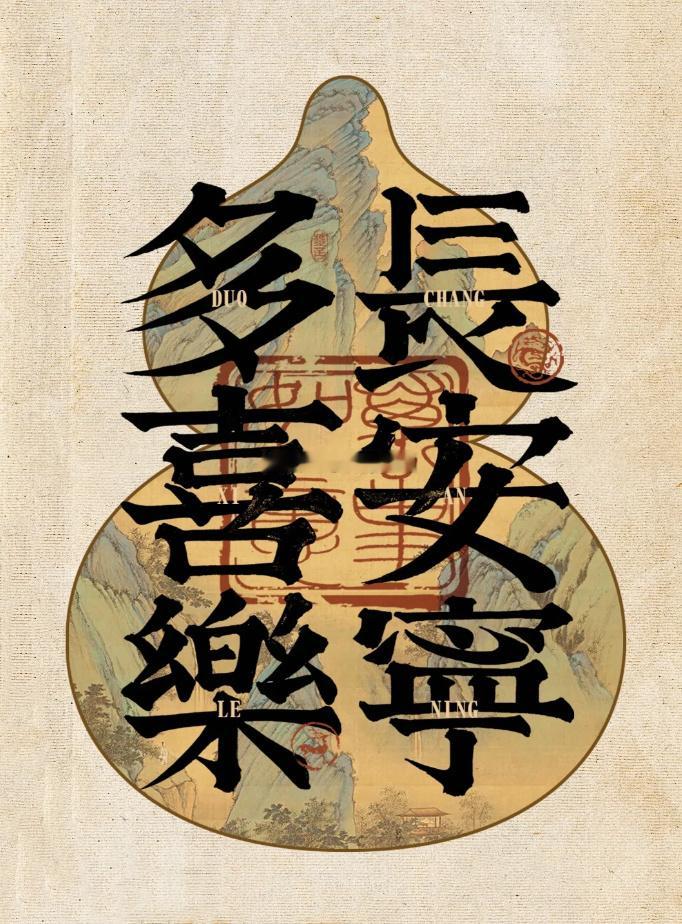 多喜樂
長安寧
DUO
CHANG
XI
AN
LE
NING